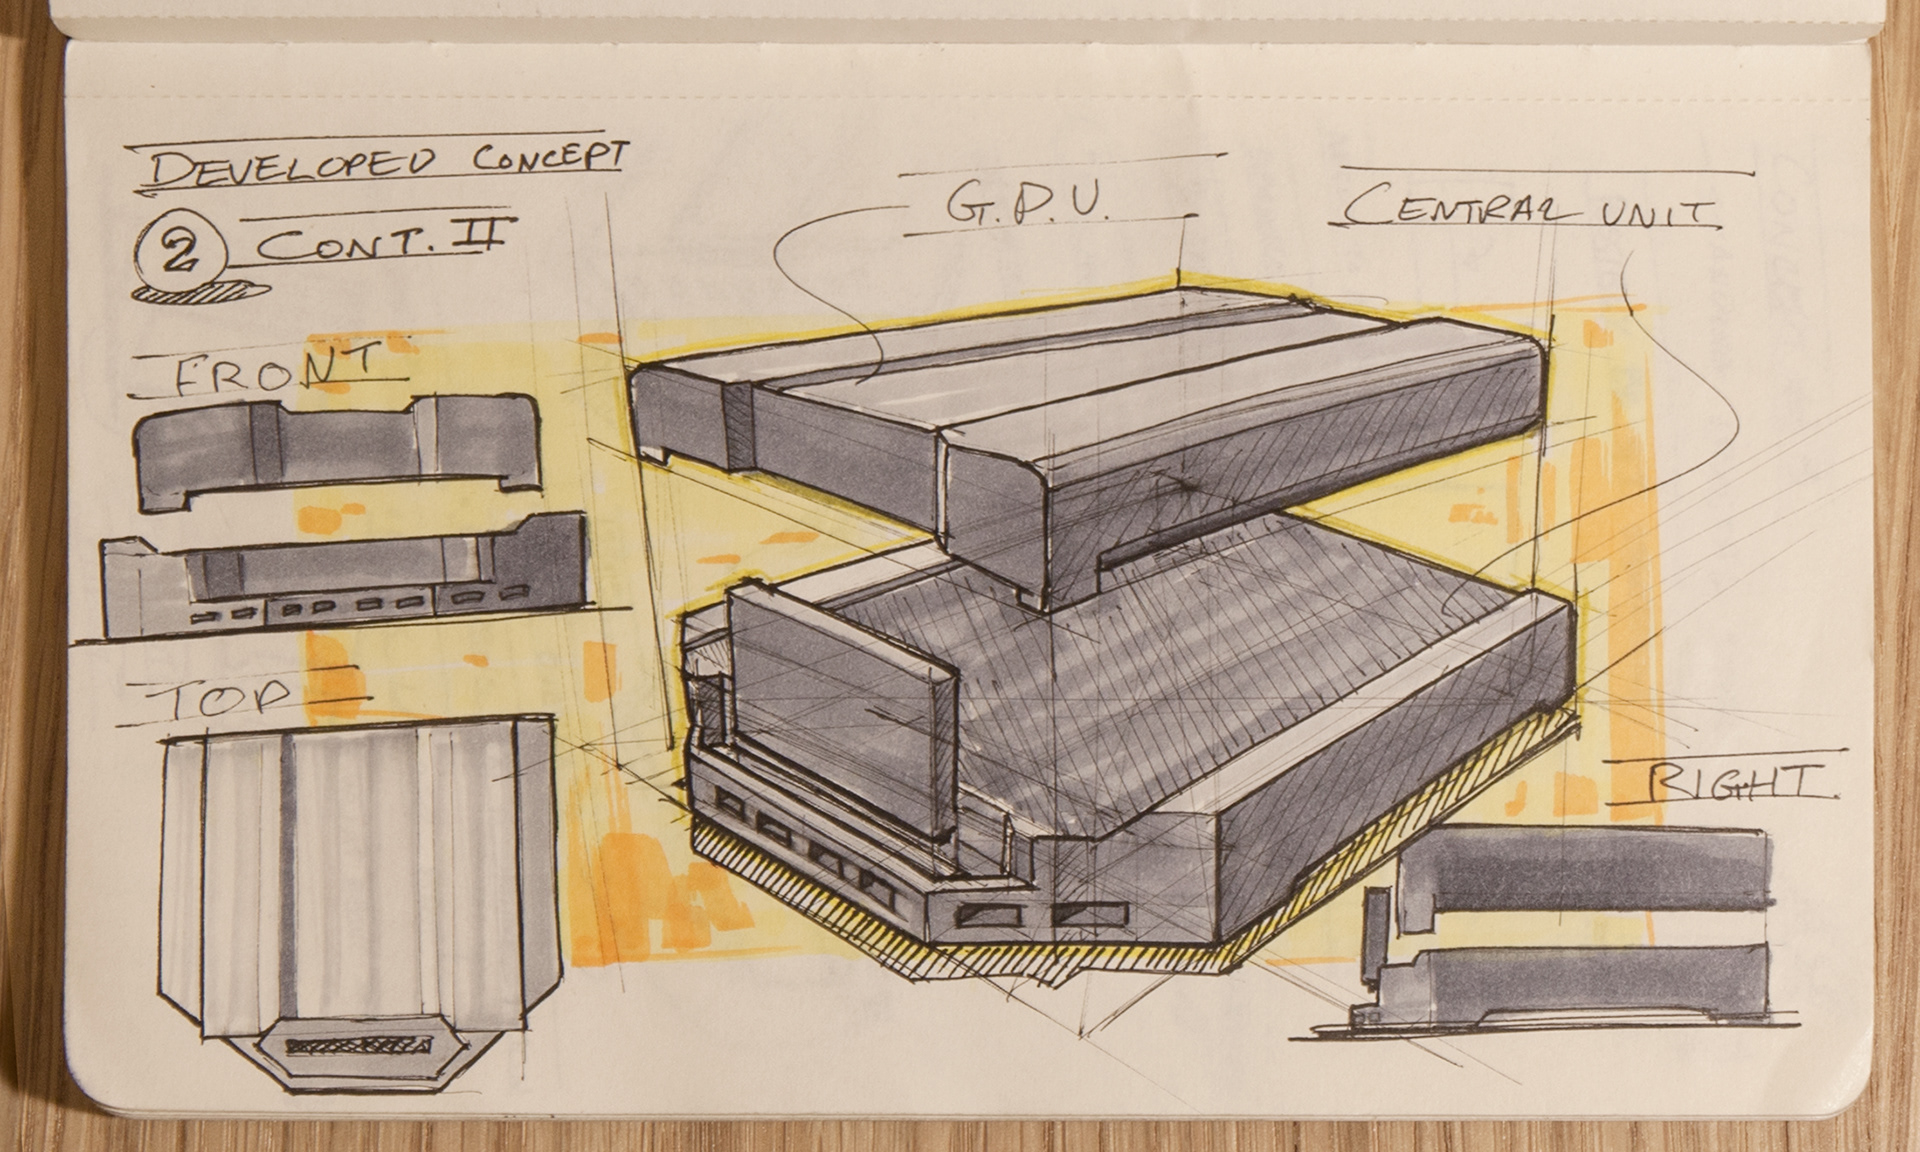 DEVELOPED CONCEPT
2 CONT. II
G.P.U.
CENTRAL UNIT
FRONT
TOP
RIGHT